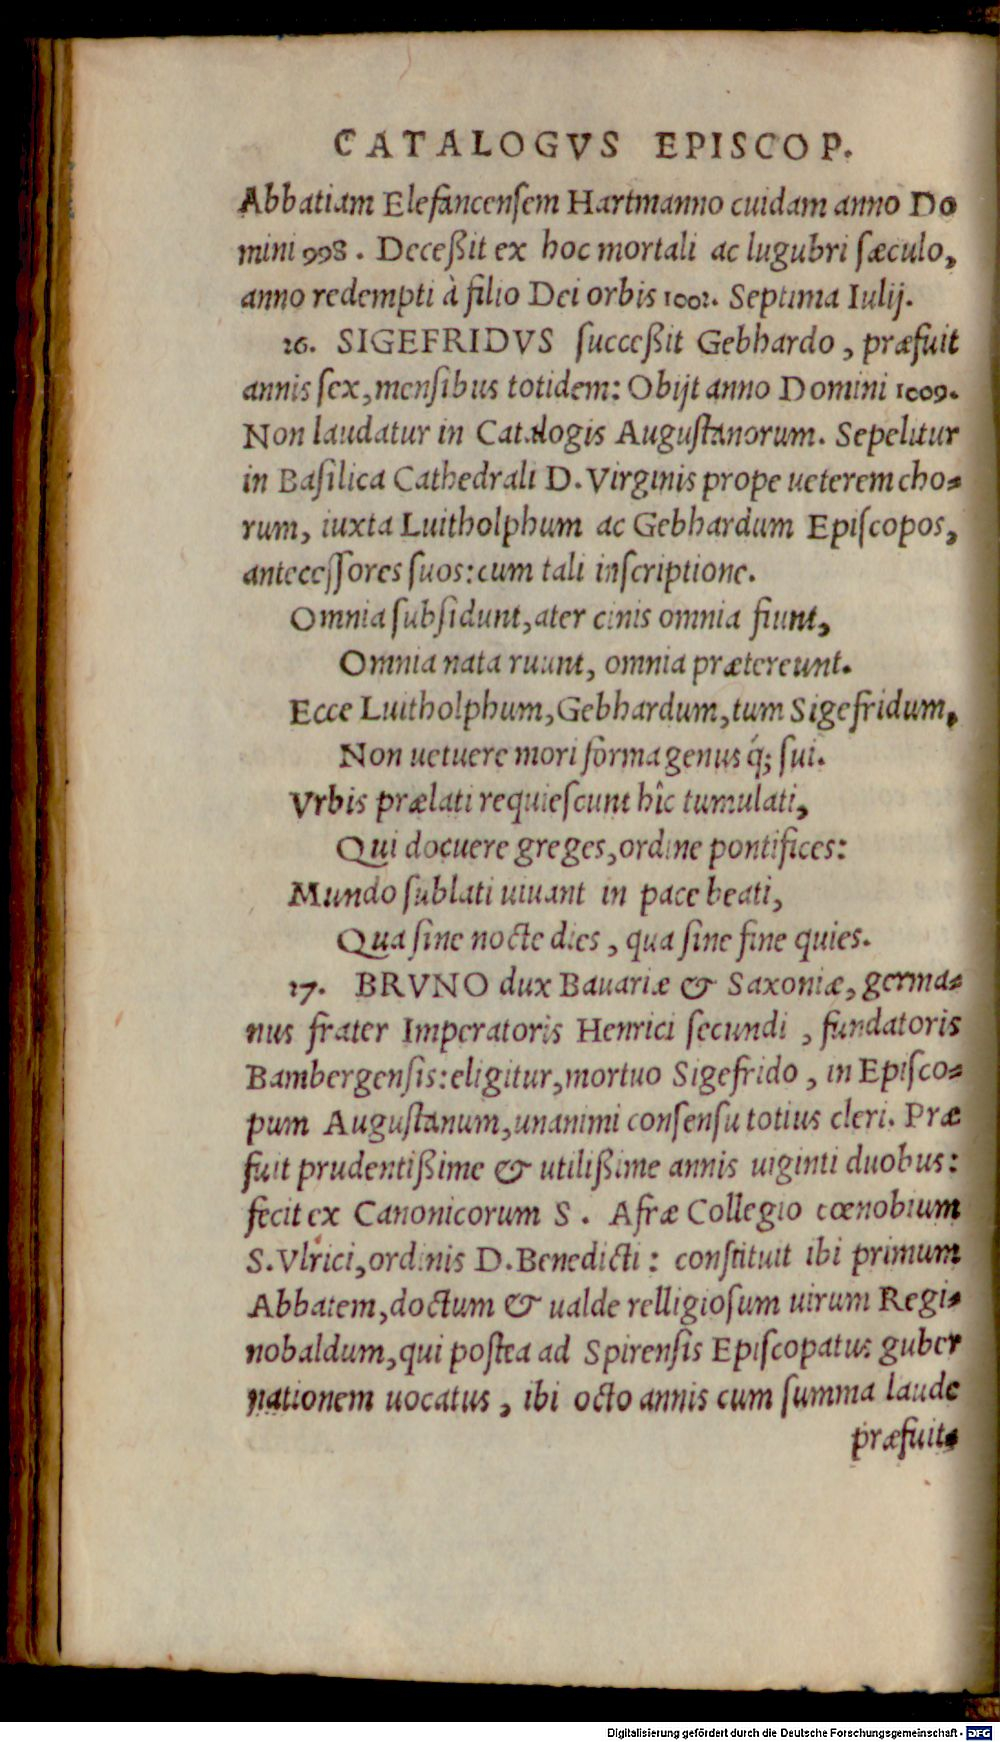 CATALOGVS EPISCOP.
Abbatiam Elefancenſem Hartmanno cuidam anno Do
mini 998. Deceßit ex hoc mortali ac lugubri ſæculo,
anno redempti à filio Dei orbis 1001. Septima Iulij.
26. SIGEFRIDVS ſucceßit Gebhardo, præfuit
annis ſex, menſibus totidem: Obijt anno Domini 1009.
Non laudatur in Catalogis Auguſtanorum. Sepelitur
in Baſilica Cathedrali D. Virginis prope ueterem cho=
rum, iuxta Luitholphum ac Gebhardum Epiſcopos,
anteceſſores ſuos: cum tali inſcriptione.
Omnia ſubſidunt, ater cinis omnia fiunt,
Omnia nata ruunt, omnia prætereunt.
Ecce Luitholphum, Gebhardum, tum Sigefridum,
Non uetuere mori forma genus q́; ſui.
Vrbis prælati requieſcunt hîc tumulati,
Qui docuere greges, ordine pontifices:
Mundo ſublati uiuant in pace beati,
Qua ſine nocte dies, qua ſine fine quies.
27. BRVNO dux Bauariæ & Saxoniæ, germa=
nus frater Imperatoris Henrici ſecundi, fundatoris
Bambergenſis: eligitur, mortuo Sigefrido, in Epiſco=
pum Auguſtanum, unanimi conſenſu totius cleri. Præ
fuit prudentißime & utilißime annis uiginti duobus:
fecit ex Canonicorum S. Afræ Collegio cœnobium
S. Vlrici, ordinis D. Benedicti: conſtituit ibi primum
Abbatem, doctum & ualde relligioſum uirum Regi=
nobaldum, qui poſtea ad Spirenſis Epiſcopatus guber
nationem uocatus, ibi octo annis cum ſumma laude
præfuit.
Digitalisierung gefördert durch die Deutsche Forschungsgemeinschaft - DFG